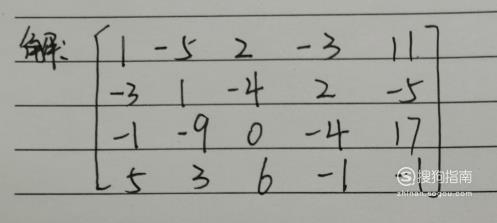 解: 1 -5 2 -3 11
-3 1 -4 2 -5
-1 -9 0 -4 17
5 3 6 -1 -1
搜狗指南
zhinan.sogou.com